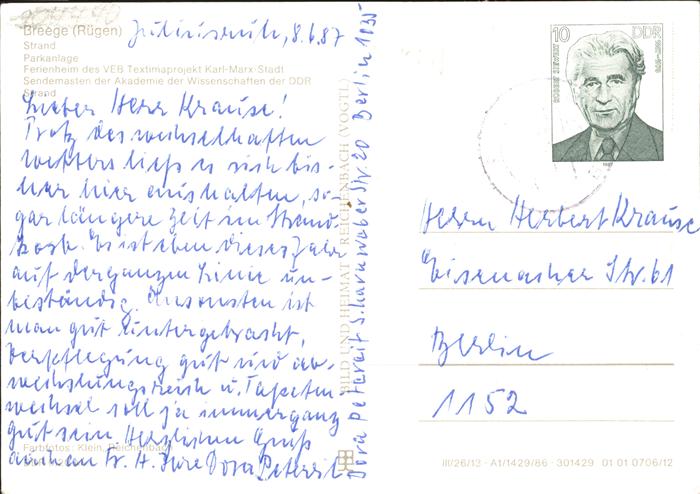 Breege (Rügen)
Strand
Parkanlage
Ferienheim des VEB Textimaprojekt Karl-Marx-Stadt
Sendemasten der Akademie der Wissenschaften der DDR
Strand
Juliusruh, 8.6.87
Lieber Herr Krause!
Trotz des wechselhaften
Wetters ließ es sich bis-
her hier aushalten, so-
gar längere Zeit im Strand-
korb. Es ist eben dieses Jahr
auf der ganzen Linie un-
beständig. Ansonsten ist
man gut untergebracht,
Verpflegung gut und ab-
wechslungsreich u. Tapeten-
wechsel soll ja immer ganz
gut sein Herzlichen Gruß
auch an Fr. H. Ihre Dora Petereit
Farbfotos: Klein, Reichenbach
BILD UND HEIMAT REICHENBACH (VOGTL)
Dora Petereit Str. 20 Berlin 1035
10 DDR
1987
Herrn Herbert Krause
Eisenacher Str. 61
Berlin
1152
III/26/13 · A1/1429/86 · 301429 01 01 0706/12